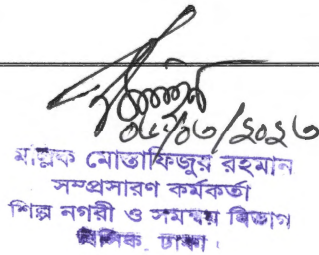 ০৫/০৩/২০২৩
মল্লিক মোস্তাফিজুর রহমান
সম্প্রসারণ কর্মকর্তা
শিল্প নগরী ও সমন্বয় বিভাগ
বিসিক, ঢাকা।